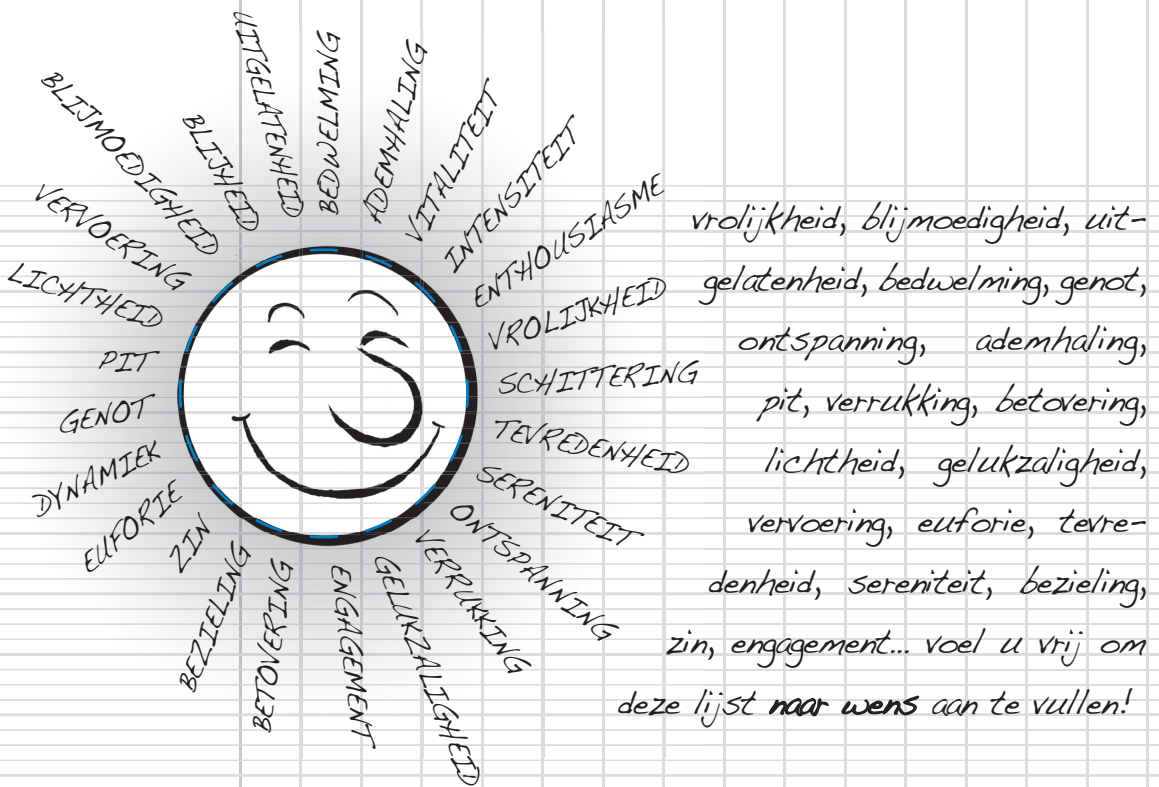 UITGELATENHEID
BEDWELMING
ADEMHALING
VITALITEIT
INTENSITEIT
ENTHOUSIASME
VROLIJKHEID
SCHITTERING
TEVREDENHEID
SERENITEIT
ONTSPANNING
VERRUKKING
GELUKZALIGHEID
ENGAGEMENT
BETOVERING
BEZIELING
ZIN
EUFORIE
DYNAMIEK
GENOT
PIT
LICHTHEID
VERVOERING
BLIJMOEDIGHEID
BLIJHEID
vrolijkheid, blijmoedigheid, uit-
gelatenheid, bedwelming, genot,
ontspanning, ademhaling,
pit, verrukking, betovering,
lichtheid, gelukzaligheid,
vervoering, euforie, tevre-
denheid, sereniteit, bezieling,
zin, engagement... voel u vrij om
deze lijst naar wens aan te vullen!